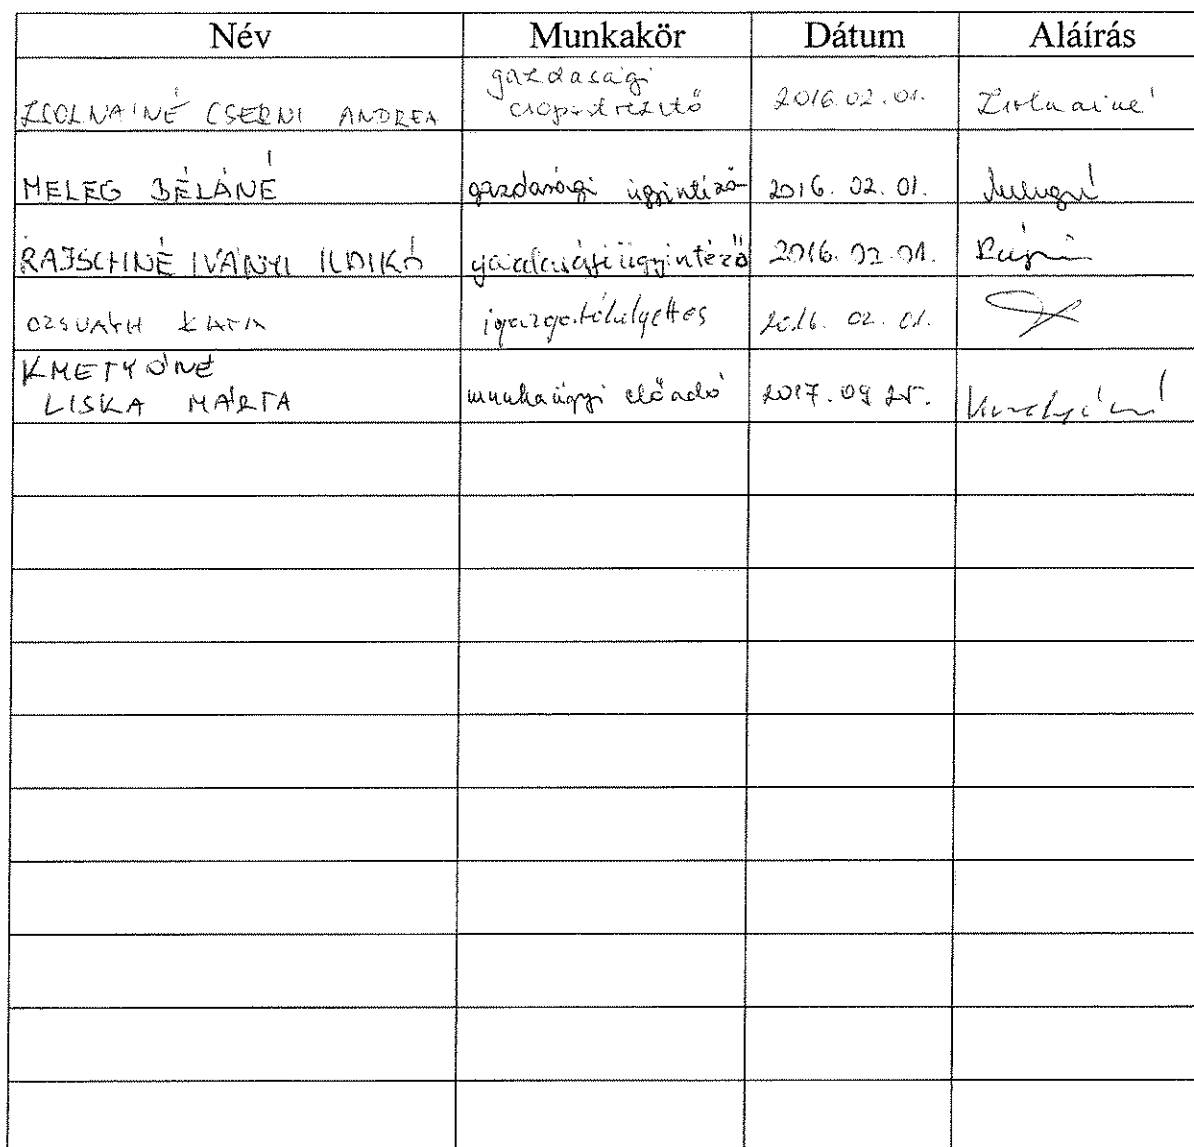 Név Munkakör Dátum Aláírás
gazdasági
ZSOLNAINÉ CSERNI ANDREA csoportvezető 2016.02.01. Zsolnainé
MELEG BÉLÁNÉ gazdasági ügyintéző 2016. 02. 01. Melegné
RAJSCHNÉ IVÁNYI ILDIKÓ gazdasági ügyintéző 2016. 02. 01.
OZSVÁTH KATA igazgatóhelyettes 2016. 02. 01.
KMETYÓNÉ
LISKA MÁRTA munkaügyi előadó 2017. 09 25. Kmetyóné